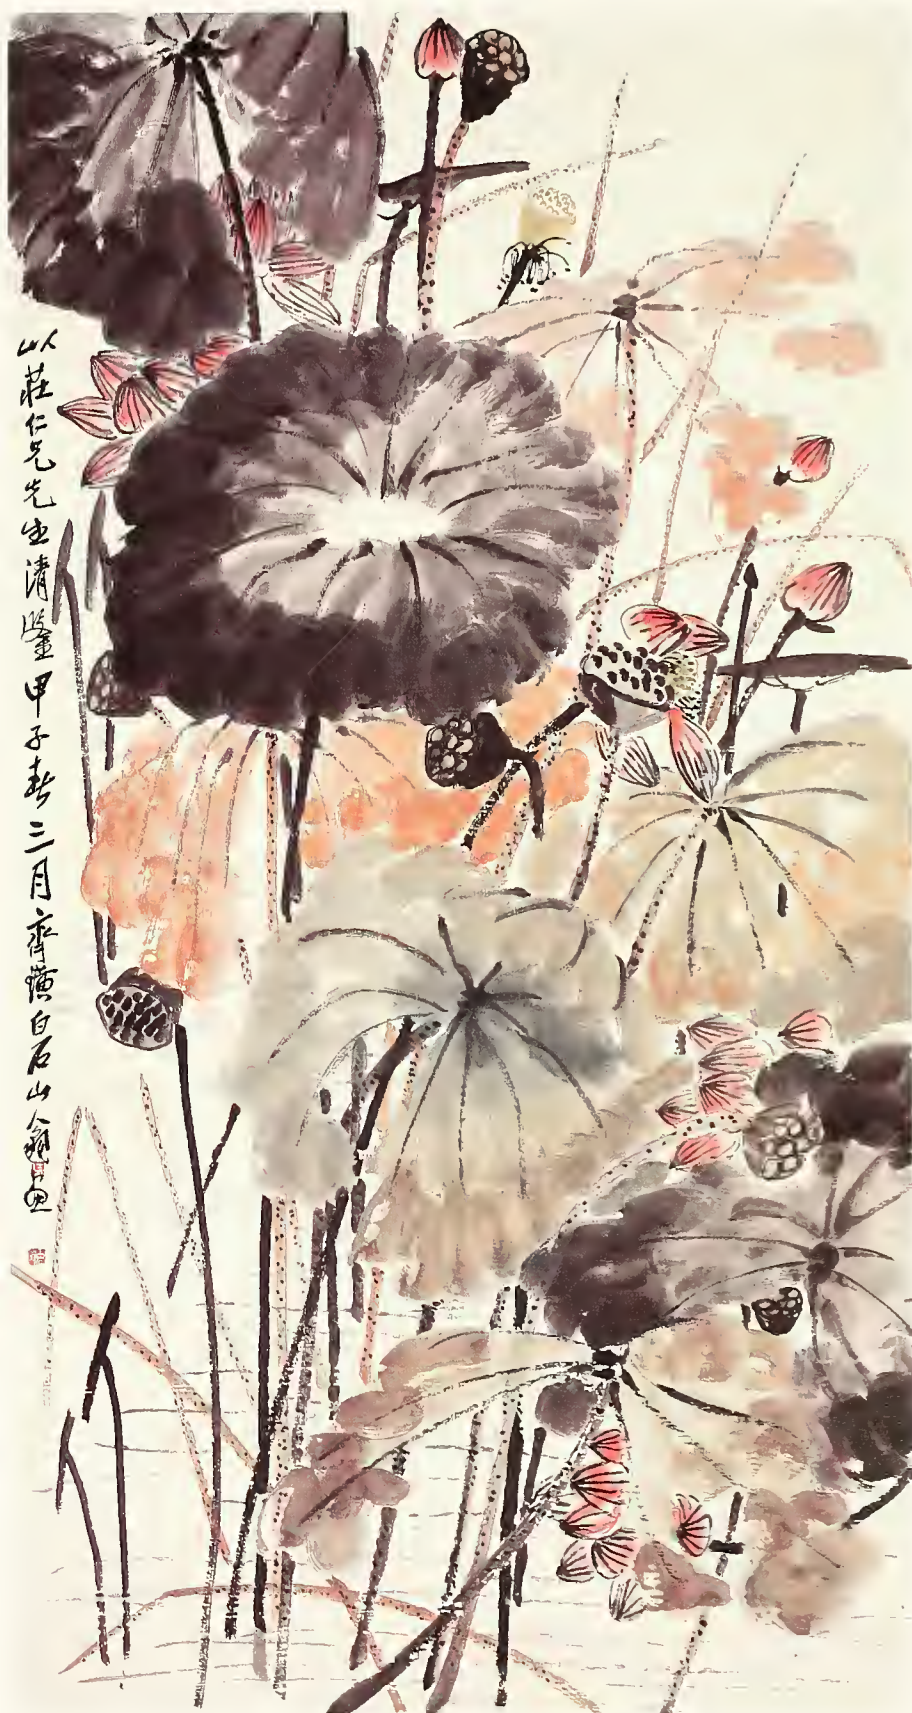 以莊仁兄先生清鑒甲子春三月齊璜白石山翁畫